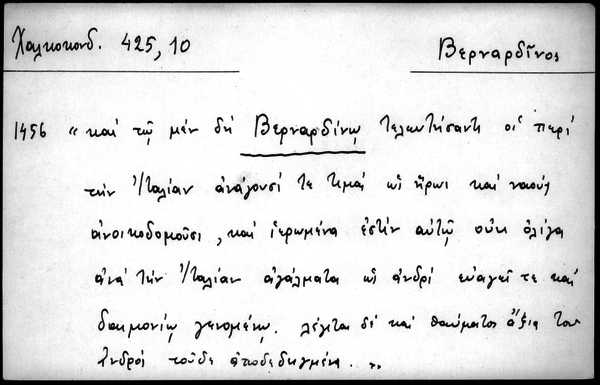 Χαλκοκονδ. 425, 10
Βερναρδῖνος
1456 " καὶ τῷ μὲν δὴ Βερναρδίνῳ τελευτήσαντι οἱ περὶ
τὴν Ἰταλίαν ἀνάγουσί τε τιμὰς ὡς ἥρωι καὶ ναοὺς
ἀνοικοδομοῦσι, καὶ ἱερωμένα ἐστὶν αὐτῷ οὐκ ὀλίγα
ἀνὰ τὴν Ἰταλίαν ἀγάλματα ὡς ἀνδρὶ εὐαγεῖ τε καὶ
δαιμονίῳ γενομένῳ. λέγεται δὲ καὶ θαύματος ἄξια τοῦ
ἀνδρὸς τοῦδε ἀποδεδειγμένα. "